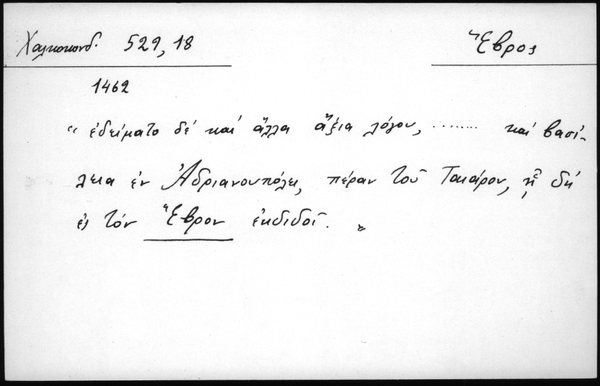 Χαλκοκονδ. 529,18 Ἕβρος
1462
" ἐδείματο δέ καί ἄλλα ἄξια λόγου, ........ καί βασί-
λεια ἐν Ἀδριανουπόλει, πέραν τοῦ Ταιάρου, ᾗ δή
ἐς τόν Ἕβρον ἐκδιδοῖ. "